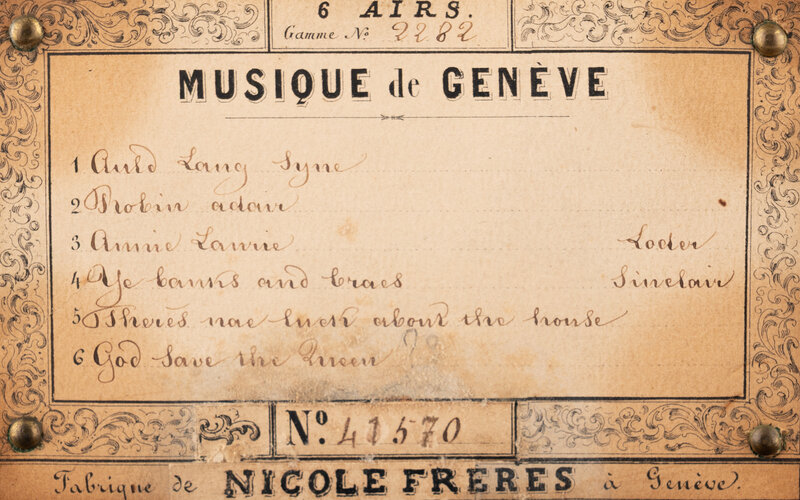 6 AIRS.
Gamme No. 2282
MUSIQUE de GENÈVE
1 Auld Lang Syne
2 Robin adair
3 Annie Lawrie Loder
4 Ye banks and braes Sinclair
5 Theres nae luck about the house
6 God Save the Queen
No. 41570
Fabrique de NICOLE FRERES à Genève.